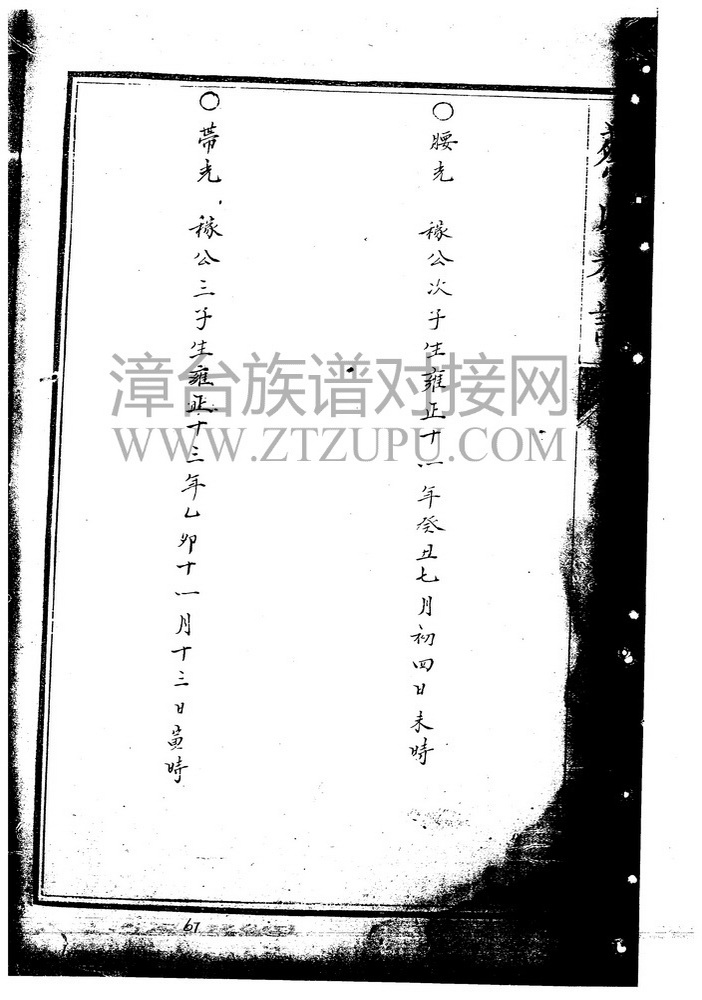 ○腰光 稼公次子生雍正十一年癸丑七月初四日未時
○帶光 稼公三子生雍正十三年乙卯十一月十三日寅時
漳台族谱对接网
WWW.ZTZUPU.COM
67